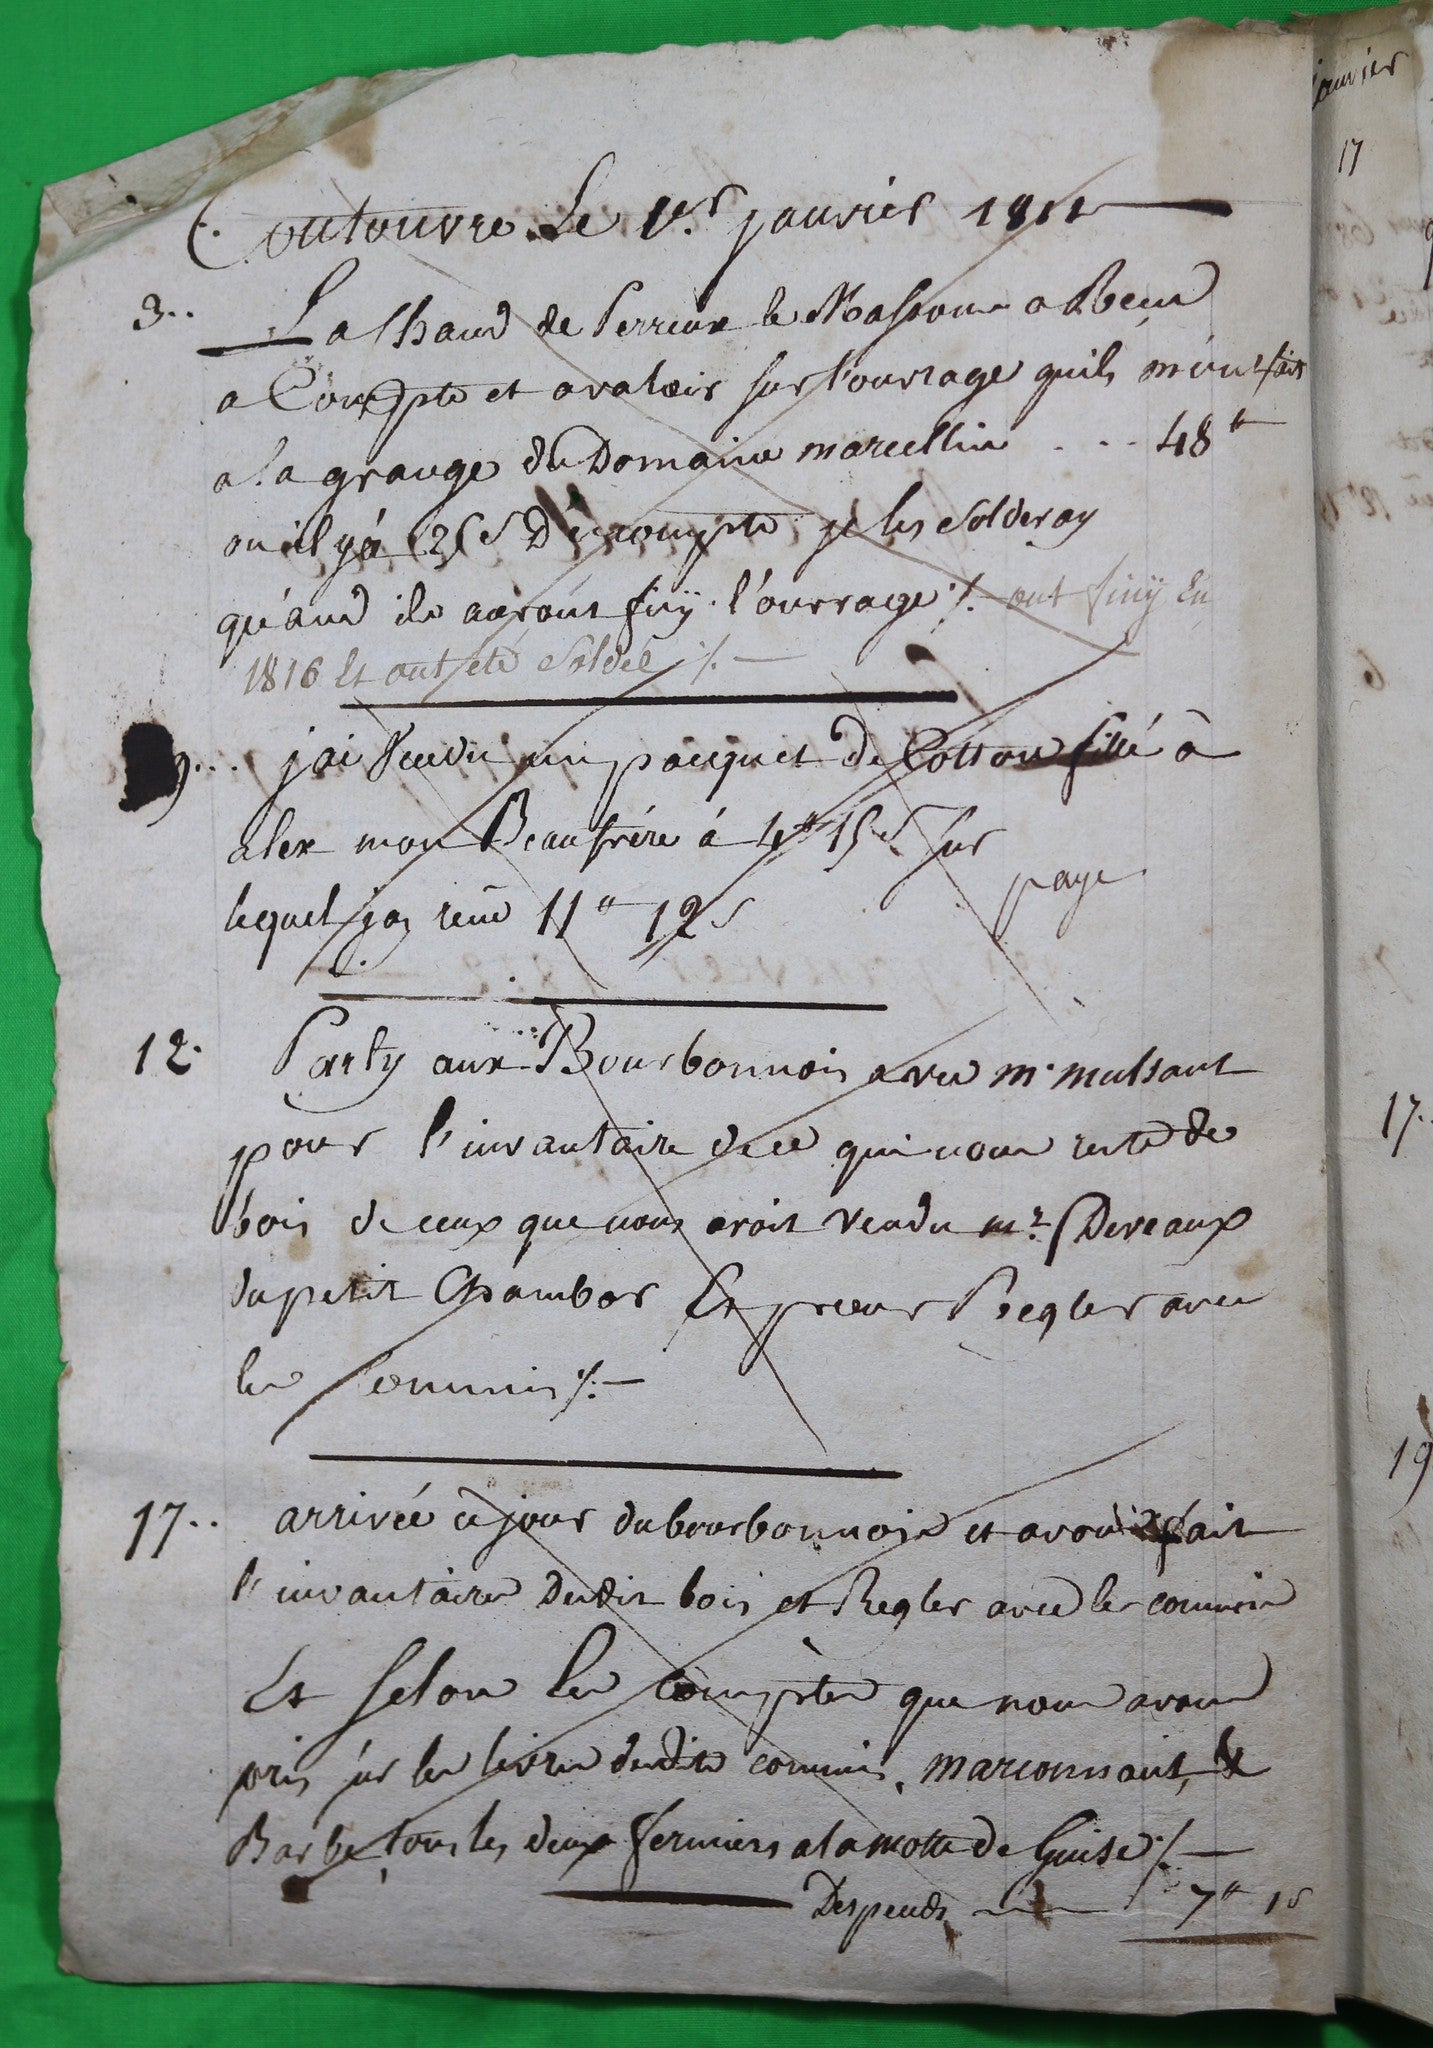 Coutouvre Le 1er janvier 1811
3.. Lachaud de Perreux le Massone a Reçeu
a Compte et avaloir sur l'ouvrage quils m'ont fait
a la grange du Domaine marcellin . . . 48tt
ou il y a 25 s D'écompte je les Solderay
qu'and ils auront finÿ l'ouvrage ⁒ ont finÿ En
1816 Et ont été Soldée ⁒
9... jai Vendu un pacquet de Cotton fillé à
alex mon Beaufrére à 4tt 15 s sur
lequel jay reçû 11tt 12 s
paye
12. Party aux Bourbonnois avec mr mulsant
pour l'invantaire de ce qui nous reste de
bois de ceux que nous avoit vendu mr Deveaux
du petit Chambor Et pour Regler avec
les Commis ⁒
17.. arrivée ce jour du bourbonnois et avons fait
l'invantaire dudit bois et Regler avec les commis
Et selon les compter que nous avons
pris sur les livres dudits commis, marconnait, &
Barbe tous les deux fermiers a la motte de Guise ⁒
Despends 7tt 1 s
janvier
17
17.
19